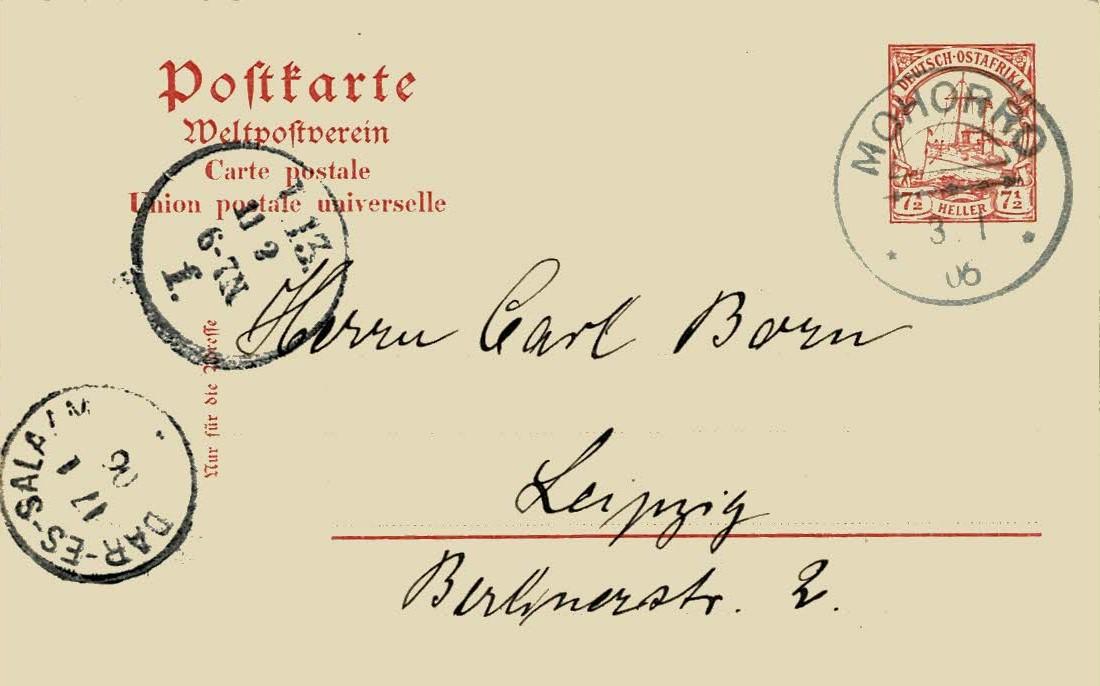 Postkarte
Weltpostverein
Carte postale
Union postale universelle
DEUTSCH-OSTAFRIKA
7½ HELLER 7½
MOHORRO
3. 1
06
13.
11 2
6-7N
1.
Nur für die Adresse
Herrn Carl Born
Leipzig
Berlinerstr. 2.
DAR-ES-SALAAM
17 1
06